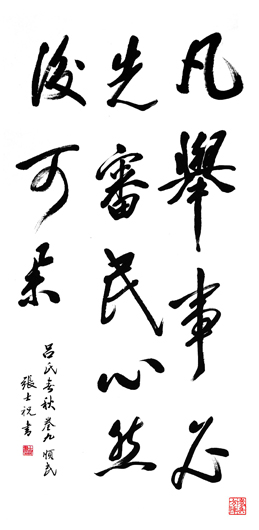 凡舉事必
先審民心然
後可舉
呂氏春秋卷九順民
張士祝書